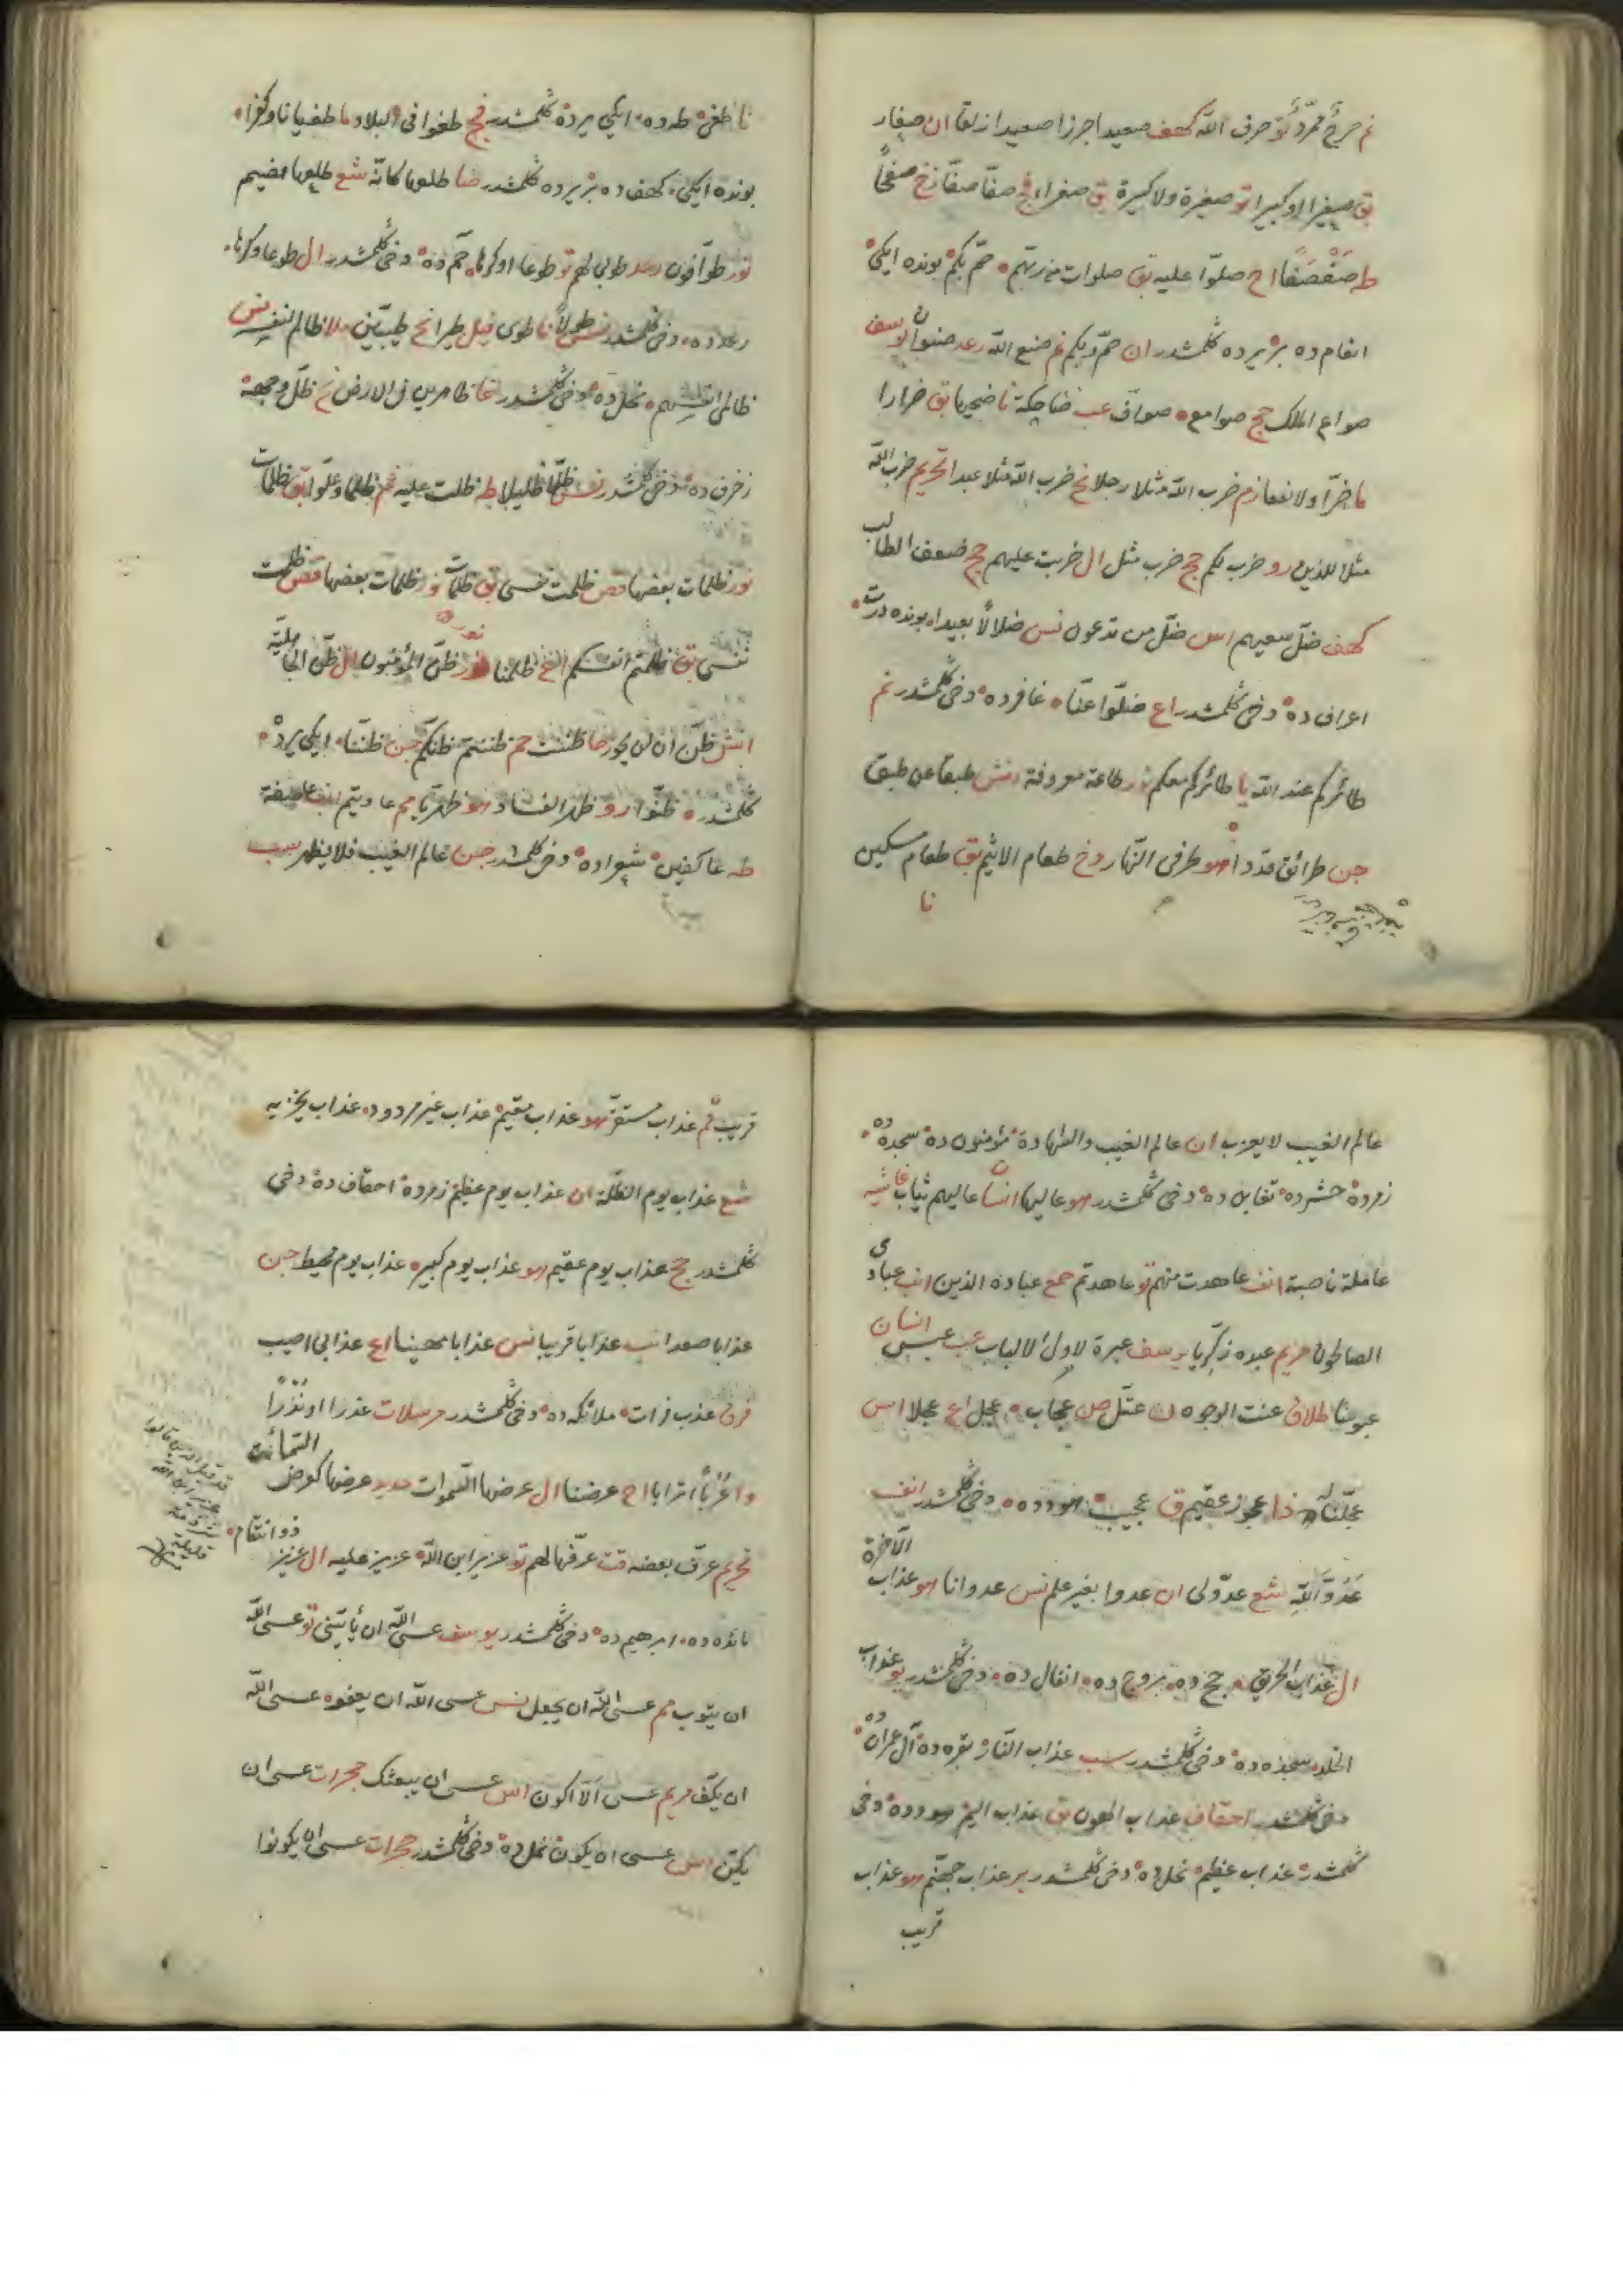 نم صرحٌ ممرّدٌ تو صرف اللّه كهف صعيدا جرزا صعيدا زلقا ان صغار
بق صغيرا او كبيرا تو صغيرة ولا كبيرة بق صفراء فج صفّا صفّا زخ صفحًا
طه صَفْصَفًا اح صلّوا عليه بق صلوات من ربّهم ٥ صمّ بكم بونده ايكى
انعام ده بر يرده كلمشدر ان صمّ وبكم نم صنع اللّه رعد صنوان يوسف
صواع الملك حج صوامع ٥ صوافّ عب ضاحكة نا ضحيها بق ضرارا
ما ضرّا ولا نفعا زم ضرب اللّه مثلا رجلا نح ضرب اللّه مثلا عبدا تحريم ضرب اللّه
مثلا للذين رو ضرب لكم حج ضرب مثل ال ضربت عليهم حج ضعف الطالب
كهف ضلّ سعيهم اس ضلّ من تدعون نس ضلالًا بعيدا ٥ بونده درت
اعراف ده ٥ دخى كلمشدر اع ضلّوا عنّا ٥ غافر ده ٥ دخى كلمشدر نم
طائركم عند اللّه يا طائركم معكم نور طاعة معروفة انش طبقا عن طبق
جن طرائق قددا هو طرفى النّهار دخ طعام الاثيم بق طعام مسكين
نا
نا طغى ٥ طه ده ٥ ايكى يرده كلمشدر فج طغوا فى البلاد ما طغيانا وكفرا ٥
بونده ايكى ٥ كهف ده ٥ بر يرده كلمشدر صا طلعها كانّه شع طلعها هضيم
نور طوّافون رعد طوبى لهم تو طوعا او كرها ٥ حم ده ٥ دخى كلمشدر ال طوعا وكرها ٥
رعد ده ٥ دخى كلمشدر نس طولًا نا طوى فيل طيرا نح طيّبين ملا ظالم لنفسه نس
ظالمى انفسهم ٥ نحل ده ٥ دخى كلمشدر غا ظاهرين فى الارض نح ظلّ وجهه
زخرف ده ٥ دخى كلمشدر نس ظلّا ظليلا طه ظلت عليه نم ظلما وعلوّا بق ظلمات
نور ظلمات بعضها قص ظلمت نفسى بق ظلمات نور ظلمات بعضها قص ظلمت
نفسى بق ظلمتم انفسكم اع ظلمنا نور ظنّ المؤمنون ال ظنّ الجاهليّة
انش ظنّ ان لن يحور حا ظننت حم ظننتم ظنّكم جن ظننّا ٥ ايكى يرده
كلمشدر ٥ ظنّوا رو ظهر الفساد هو ظهريّا مم عاديتم انب عاصفة
طه عاكفين ٥ شعرا ده ٥ دخى كلمشدر جن عالم الغيب فلا يظهر سب
عالم الغيب لا يعزب ان عالم الغيب والشهادة ٥ مؤمنون ده ٥ سجده ده ٥
زمر ده ٥ حشر ده ٥ تغابن ده ٥ دخى كلمشدر هو عاليها انسان عاليهم ثياب غاشيه
عاملة ناصبة انف عاهدت منهم تو عاهدتم حمع عباده الذين انب عبادى
الصالحون مريم عبده زكريّا يوسف عبرة لاولى الالباب عب عبس انسان
عبوسا طلاق عنت الوجوه ن عتلّ ص عجاب ٥ عجل اع عجلا اس
عجّلنا له ذا عجوز عقيم ق عجيب ٥ هود ده ٥ دخى كلمشدر انف
عَدُوَّ اللّهِ شع عدوّ لى ان عدوا بغير علم نس عدوانا هو عذاب الآخرة
ال عذاب الحريق ٥ حج ده ٥ بروج ده ٥ انفال ده ٥ دخى كلمشدر يو عذاب
الخلد سجده ده ٥ دخى كلمشدر سب عذاب النّار ٥ بقره ده ٥ آل عمران ده ٥
دخى كلمشدر احقاف عذاب الهون بق عذاب اليم ٥ هود ده ٥ دخى
كلمشدر ٥ عذاب عظيم ٥ نحل ده ٥ دخى كلمشدر بر عذاب جهنّم هو عذاب
قريب
قريب قم عذاب مستقرّ هو عذاب مقيم ٥ عذاب غير مردود ٥ عذاب يخزيه
شع عذاب يوم الظلّة ان عذاب يوم عظيم ٥ زمر ده ٥ احقاف ده ٥ دخى
كلمشدر حج عذاب يوم عقيم هو عذاب يوم كبير ٥ عذاب يوم محيط جن
عذابا صعدا انب عذابا قريبا نس عذابا مهينا اع عذابى اصيب
فرق عذب فرات ٥ ملائكه ده ٥ دخى كلمشدر مرسلات عذرا او نُذْرًا
وا عُرُبًا اترابا اح عرضنا ال عرضها السّموات حديد عرضها كعرض السّماء
تحريم عرّف بعضه قت عرّفها لهم تو عزير ابن اللّه ٥ عزيز عليه ال عزيز ذو انتقام ٥
مائده ده ٥ ابرهيم ده ٥ دخى كلمشدر يوسف عسى اللّه ان يأتينى تو عسى اللّه
ان يتوب مم عسى اللّه ان يجعل نس عسى اللّه ان يعفو ٥ عسى اللّه
ان يكفّ مريم عسى الّا اكون اس عسى ان يبعثك حجرات عسى ان
يكنّ اس عسى ان يكون ٥ نمل ده ٥ دخى كلمشدر حجرات عسى ان يكونوا